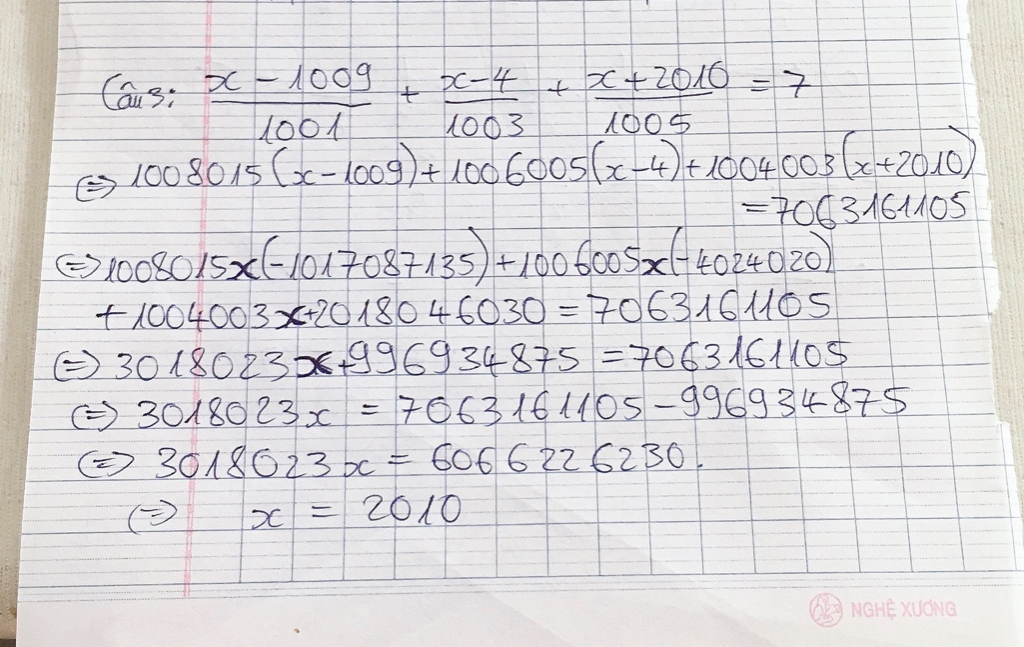 Câu 3: x - 1009 / 1001 + x - 4 / 1003 + x + 2010 / 1005 = 7
⇔ 1008015(x - 1009) + 1006005(x - 4) + 1004003(x + 2010)
= 7063161105
⇔ 1008015x(-1017087135) + 1006005x(-4024020)
+ 1004003x + 2018046030 = 7063161105
⇔ 3018023x + 996934875 = 7063161105
⇔ 3018023x = 7063161105 - 996934875
⇔ 3018023x = 6066226230.
⇔ x = 2010
NGHỆ XƯƠNG